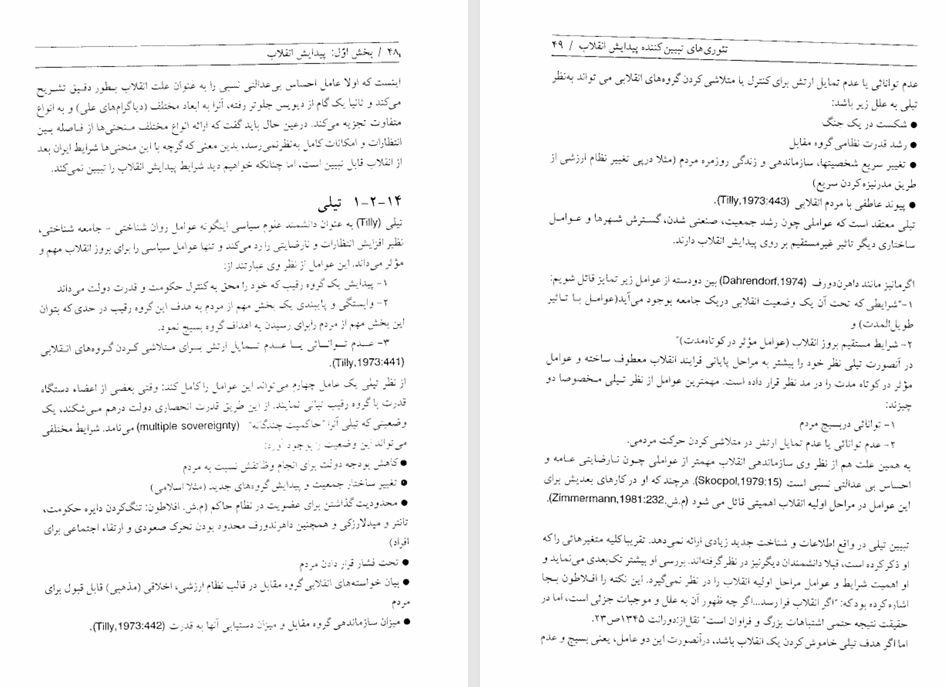 ۴۸ / بخش اوّل: پیدایش انقلاب
اینست که اولا عامل احساس بی‌عدالتی نسبی را به عنوان علت انقلاب بطور دقیق تشریح
می‌کند و ثانیا یک گام از دیویس جلوتر رفته، آنرا به ابعاد مختلف (دیاگرام‌های علی) و به انواع
متفاوت تجزیه می‌کند. درعین حال باید گفت که ارائه انواع مختلف منحنی‌ها از فاصله بین
انتظارات و امکانات کامل به‌نظر نمی‌رسد، بدین معنی که گرچه با این منحنی‌ها شرایط ایران بعد
از انقلاب قابل تبیین است، اما چنانکه خواهیم دید شرایط پیدایش انقلاب را تبیین نمی‌کند.
۱-۲-۱۴ تیلی
تیلی (Tilly) به عنوان دانشمند علوم سیاسی اینگونه عوامل روان شناختی - جامعه شناختی،
نظیر افزایش انتظارات و نارضایتی را رد می‌کند و تنها عوامل سیاسی را برای بروز انقلاب مهم و
مؤثر می‌داند. این عوامل از نظر وی عبارتند از:
۱- پیدایش یک گروه رقیب که خود را محق به کنترل حکومت و قدرت دولت می‌داند
۲- وابستگی و پایبندی یک بخش مهم از مردم به هدف این گروه رقیب در حدی که بتوان
این بخش مهم از مردم رابرای رسیدن به اهداف گروه بسیج نمود.
۳- عدم توانائی یا عدم تمایل ارتش برای متلاشی کردن گروه‌های انقلابی
(Tilly,1973:441).
از نظر تیلی یک عامل چهارم می‌تواند این عوامل را کامل کند: وقتی بعضی از اعضاء دستگاه
قدرت با گروه رقیب تبانی نمایند. از این طریق قدرت انحصاری دولت درهم می‌شکند، یک
وضعیتی که تیلی آنرا "حاکمیت چندگانه" (multiple sovereignty) می‌نامد. شرایط مختلفی
می‌تواند این وضعیت را بوجود آورد:
● کاهش بودجه دولت برای انجام وظائفش نسبت به مردم
● تغییر ساختار جمعیت و پیدایش گروه‌های جدید (مثلا اسلامی)
● محدودیت گذاشتن برای عضویت در نظام حاکم (م.ش. افلاطون: تنگ‌کردن دایره حکومت،
تانتر و میدلارزکی و همچنین داهرندورف محدود بودن تحرک صعودی و ارتقاء اجتماعی برای
افراد)
● تحت فشار قرار دادن مردم
● بیان خواسته‌های انقلابی گروه مقابل در قالب نظام ارزشی، اخلاقی (مذهبی) قابل قبول برای
مردم
● میزان سازماندهی گروه مقابل و میزان دستیابی آنها به قدرت (Tilly,1973:442).
تئوری‌های تبیین‌کننده پیدایش انقلاب / ۴۹
عدم توانائی یا عدم تمایل ارتش برای کنترل یا متلاشی کردن گروه‌های انقلابی می تواند به‌نظر
تیلی به علل زیر باشد:
● شکست در یک جنگ
● رشد قدرت نظامی گروه مقابل
● تغییر سریع شخصیتها، سازماندهی و زندگی روزمره مردم (مثلا درپی تغییر نظام ارزشی از
طریق مدرنیزه کردن سریع)
● پیوند عاطفی با مردم انقلابی (Tilly,1973:443).
تیلی معتقد است که عواملی چون رشد جمعیت، صنعتی شدن، گسترش شهرها و عوامل
ساختاری دیگر تاثیر غیرمستقیم بر روی پیدایش انقلاب دارند.
اگرمانیز مانند داهرن‌دورف (Dahrendorf,1974) بین دودسته از عوامل زیر تمایز قائل شویم:
۱-"شرایطی که تحت آن یک وضعیت انقلابی دریک جامعه بوجود می‌آید(عوامل با تاثیر
طویل‌المدت) و
۲- شرایط مستقیم بروز انقلاب (عوامل مؤثر در کوتاه‌مدت)"
در آنصورت تیلی نظر خود را بیشتر به مراحل پایانی فرایند انقلاب معطوف ساخته و عوامل
مؤثر در کوتاه مدت را در مد نظر قرار داده است. مهمترین عوامل از نظر تیلی مخصوصا دو
چیزند:
۱- توانائی دربسیج مردم
۲- عدم توانائی یا عدم تمایل ارتش در متلاشی کردن حرکت مردمی.
به همین علت هم از نظر وی سازماندهی انقلاب مهمتر از عواملی چون نارضایتی عامه و
احساس بی عدالتی نسبی است (Skocpol,1979:15). هرچند که او در کارهای بعدیش برای
این عوامل در مراحل اولیه انقلاب اهمیتی قائل می شود (م.ش.Zimmermann,1981:232).
تبیین تیلی در واقع اطلاعات و شناخت جدید زیادی ارائه نمی‌دهد. تقریبا کلیه متغیرهائی را که
او ذکر کرده است، قبلا دانشمندان دیگر نیز در نظر گرفته‌اند. بررسی او بیشتر تک‌بعدی می‌نماید و
او اهمیت شرایط و عوامل مراحل اولیه انقلاب را در نظر نمی‌گیرد. این نکته را افلاطون بجا
اشاره کرده بود که: "اگر انقلاب فرا رسد...اگر چه ظهور آن به علل و موجبات جزئی است، اما در
حقیقت نتیجه حتمی اشتباهات بزرگ و فراوان است" نقل از:دورانت ۱۳۴۵ص۲۳.
اما اگر هدف تیلی خاموش کردن یک انقلاب باشد، درآنصورت این دو عامل، یعنی بسیج و عدم